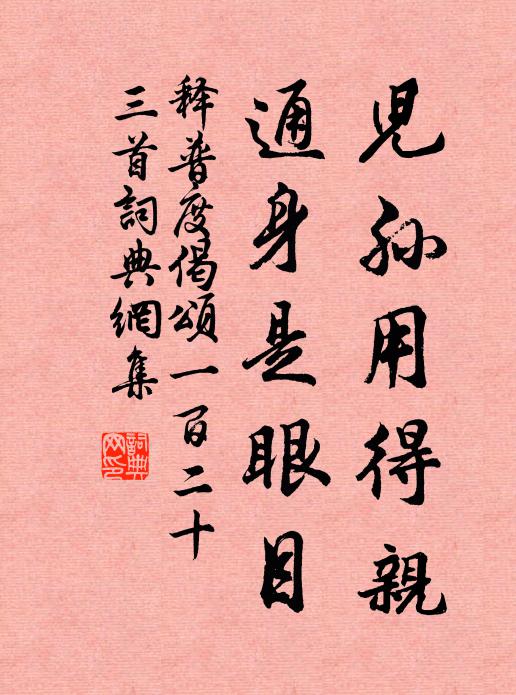 兒孫用得親
通身是眼目
释普度偈頌一百二十
三首詞典網集
詞典
网印